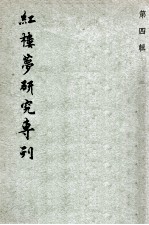 第四輯
紅樓夢研究專刊